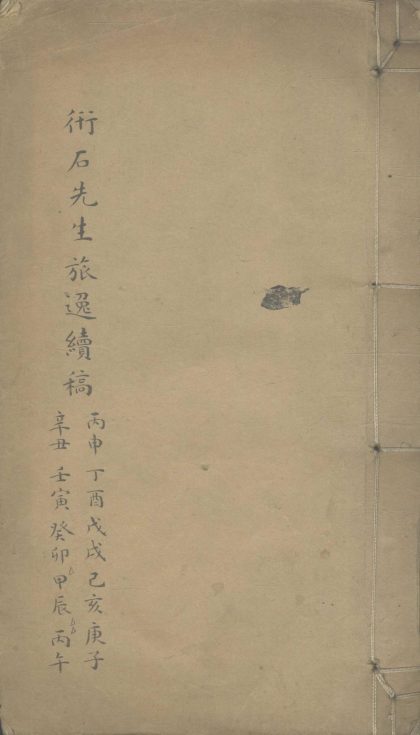 衎石先生旅逸續稿
丙申丁酉戊戌己亥庚子
辛丑壬寅癸卯甲辰丙午